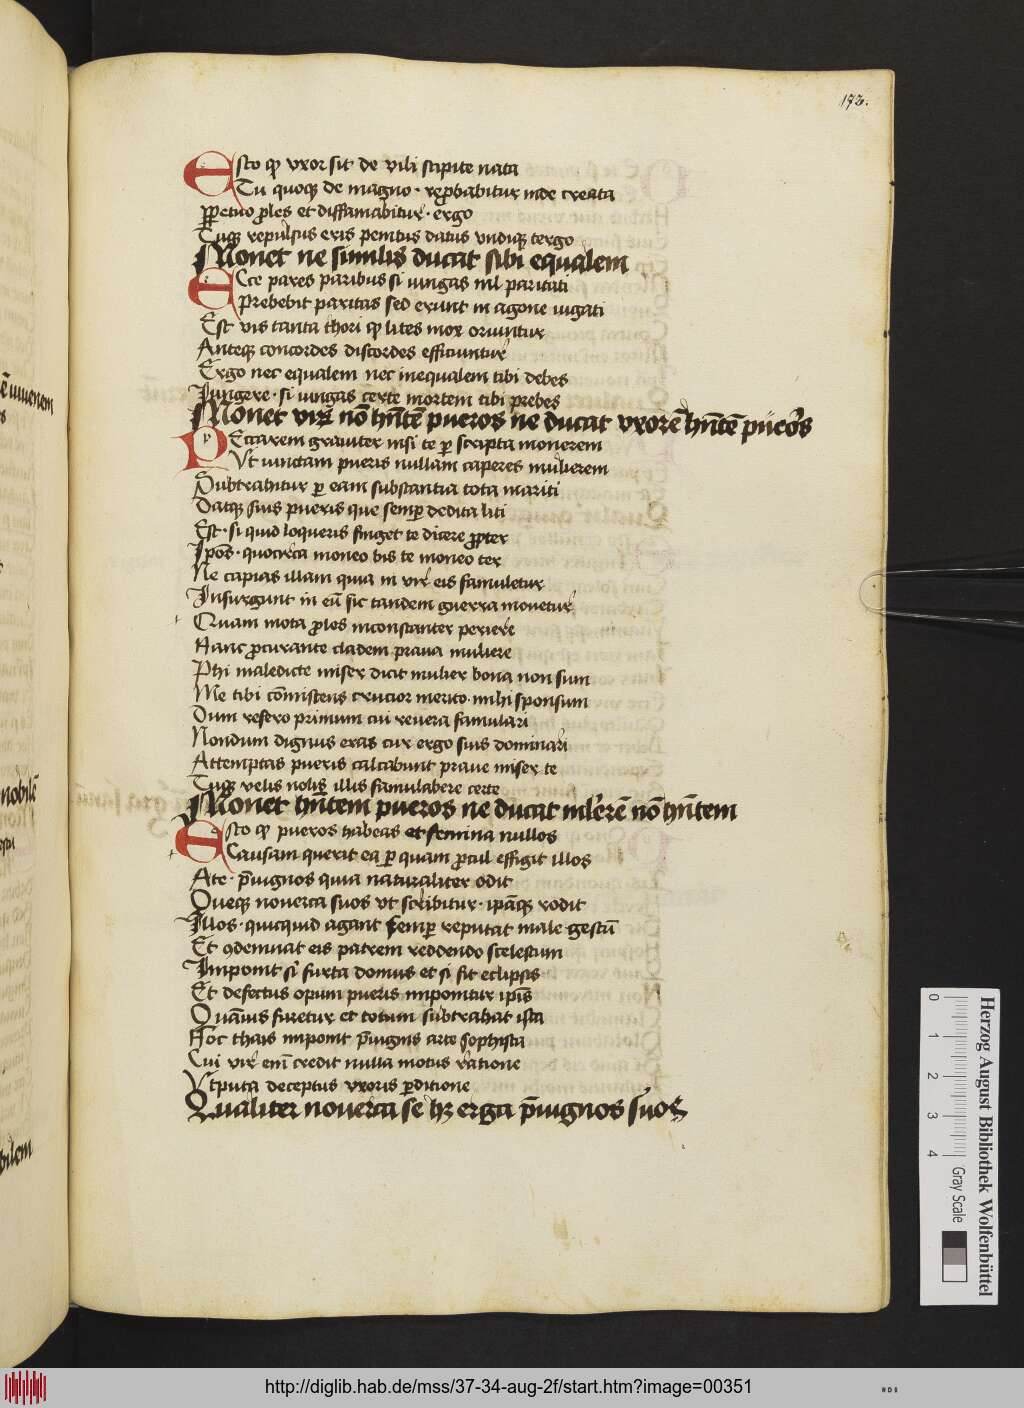 172.
Esto qꝫ vxor sit de vili stipite nata
Tu quoqꝫ de magno · reꝓbabitur inde creata
ꝑpetuo ꝓles et diffamabitur · ergo
Tuqꝫ repulsus eris penitus datus vndiqꝫ tergo
Monet ne similis ducat sibi equalem
Ecce pares paribus si iungas nil paritati
Prebebit paritas sed erunt in agone iugati
Est vis tanta thori qꝫ lites mox oriuntur
Anteqꝫ concordes discordes efficiuntur
Ergo nec equalem nec inequalem tibi debes
Iungere · si iungas certe mortem tibi prebes
Monet virū nō hn̄tē pueros ne ducat vxorē hn̄tē pūeos
Peccarem grauiter nisi te ꝑ scripta monerem
Vt iunctam pueris nullam caperes mulierem
Subtrahitur ꝑ eam substantia tota mariti
Datqꝫ suis pueris que semꝑ dedita liti
Est · si quid loqueris finget te dicere ꝓpter
Ipōs · quocirca moneo bis te moneo ter
Ne capias illam quia ni vir eis famuletur
Insurgunt in eū sic tandem guerra mouetur
Quam mota ꝓles inconstanter periere
Hanc ꝓcurante cladem praua muliere
Phi maledicte miser dicit mulier bona non sum
Me tibi cōmistens crucior merito mihi sponsum
Dum refero primum cui reuera famulari
Nondum dignus eras cur ergo suis dominari
Attemptas pueris calcabunt praue miser te
Tuqꝫ velis nolis illis famulabere certe
Monet hn̄tem pueros ne ducat ml̄ierē nō hn̄tem
Esto qꝫ pueros habeas et femina nullos
Causam querit ea ꝑ quam ꝓcul effigit illos
Ate · p̄uignos quia naturaliter odit
Queqꝫ nouerca suos vt scribitur · ipāqꝫ rodit
Illos · quicquid agant semꝑ reputat male gestū
Et ꝯdemnat eis patrem reddendo scelestum
Imponit si furta domus et si fit eclipsis
Et defectus opum pueris imponitur ipīs
Quāuis furetur et totum subtrahat ista
Hoc thais imponit p̄uignis arte sophista
Cui vir em̄ credit nulla motus ratione
Vtputa deceptus vxoris ꝑditione
Qualiter nouerca se hꝫ erga p̄uignos suos
ē iuuenem
nobilē
bilem
Herzog August Bibliothek Wolfenbüttel
0 1 2 3 4
Gray Scale
http://diglib.hab.de/mss/37-34-aug-2f/start.htm?image=00351